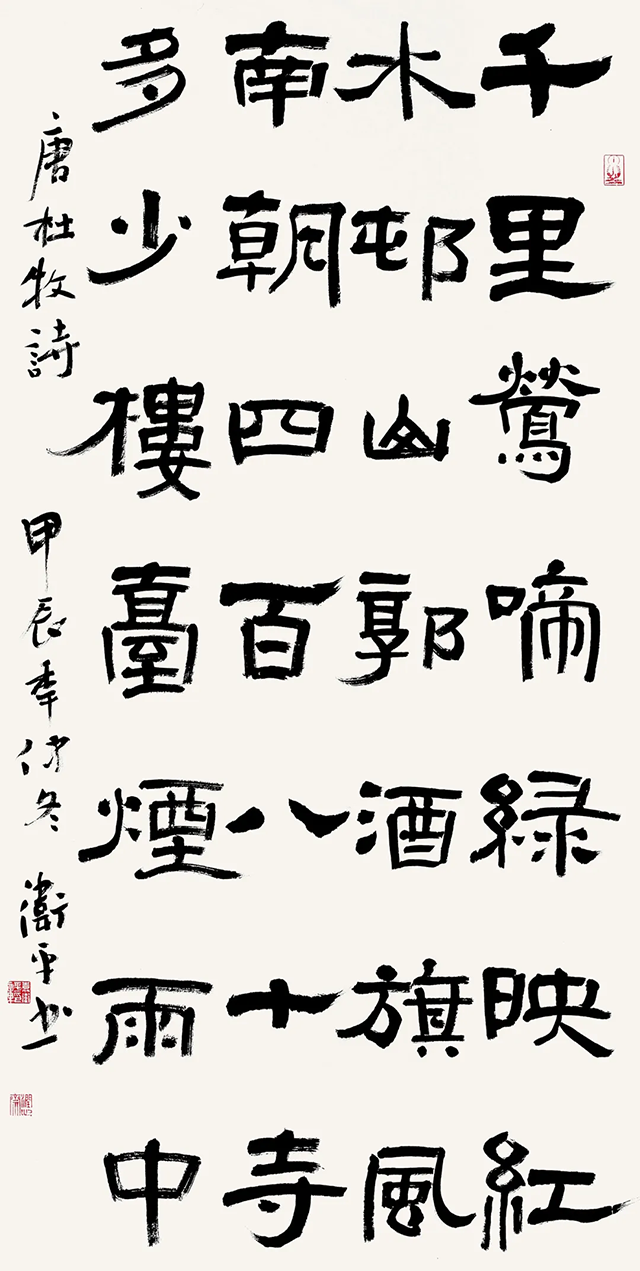 千里鶯啼緑映紅
水邨山郭酒旗風
南朝四百八十寺
多少樓臺煙雨中
唐杜牧詩 甲辰秊仲冬 衛平书